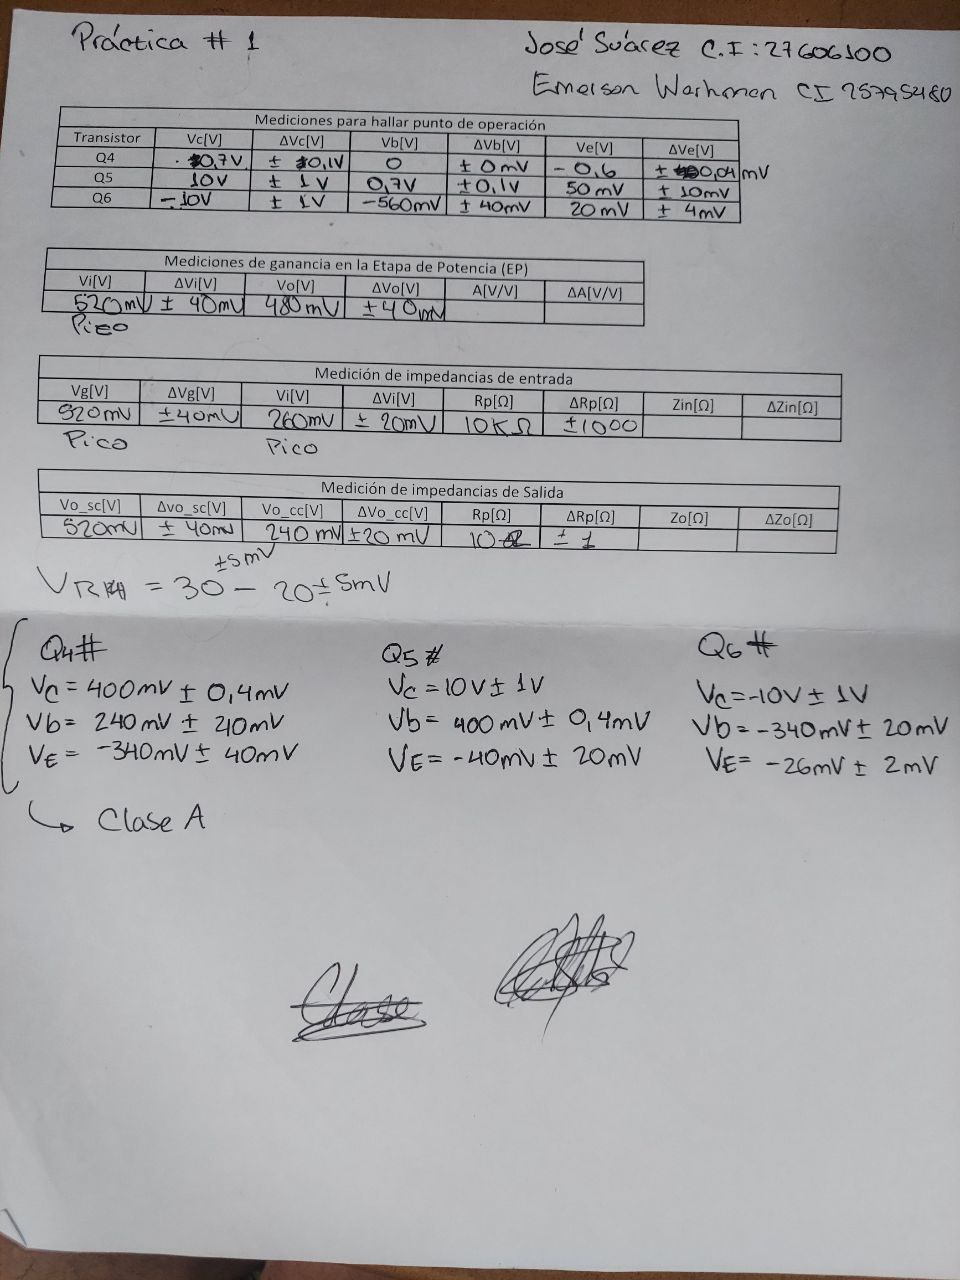 Práctica # 1
José Suárez C.I:27606100
Emerson Warhman CI 25795480
Mediciones para hallar punto de operación
Transistor Vc[V] ΔVc[V] Vb[V] ΔVb[V] Ve[V] ΔVe[V]
Q4 0,7V ± 0,1V 0 ± 0mV -0,6 ± 0,04 mV
Q5 10V ± 1V 0,7V ±0,1V 50mV ± 10mV
Q6 -10V ± 1V -560mV ± 40mV 20mV ± 4mV
Mediciones de ganancia en la Etapa de Potencia (EP)
Vi[V] ΔVi[V] Vo[V] ΔVo[V] A[V/V] ΔA[V/V]
520mV ± 40mV 480mV ±40mV
Pico
Medición de impedancias de entrada
Vg[V] ΔVg[V] Vi[V] ΔVi[V] Rp[Ω] ΔRp[Ω] Zin[Ω] ΔZin[Ω]
520mV ±40mV 260mV ± 20mV 10KΩ ±1000
Pico Pico
Medición de impedancias de Salida
Vo_sc[V] Δvo_sc[V] Vo_cc[V] ΔVo_cc[V] Rp[Ω] ΔRp[Ω] Zo[Ω] ΔZo[Ω]
520mV ± 40mV 240mV ±20mV 10Ω ± 1
±5mV
= 30 - 20±5mV
Q4# Q5# Q6#
VC = 400mV ± 0,4mV VC = 10V ± 1V VC = -10V ± 1V
Vb = 240mV ± 20mV Vb = 400mV ± 0,4mV Vb = -340mV ± 20mV
VE = -340mV ± 40mV VE = -40mV ± 20mV VE = -26mV ± 2mV
↳ Clase A
Clase